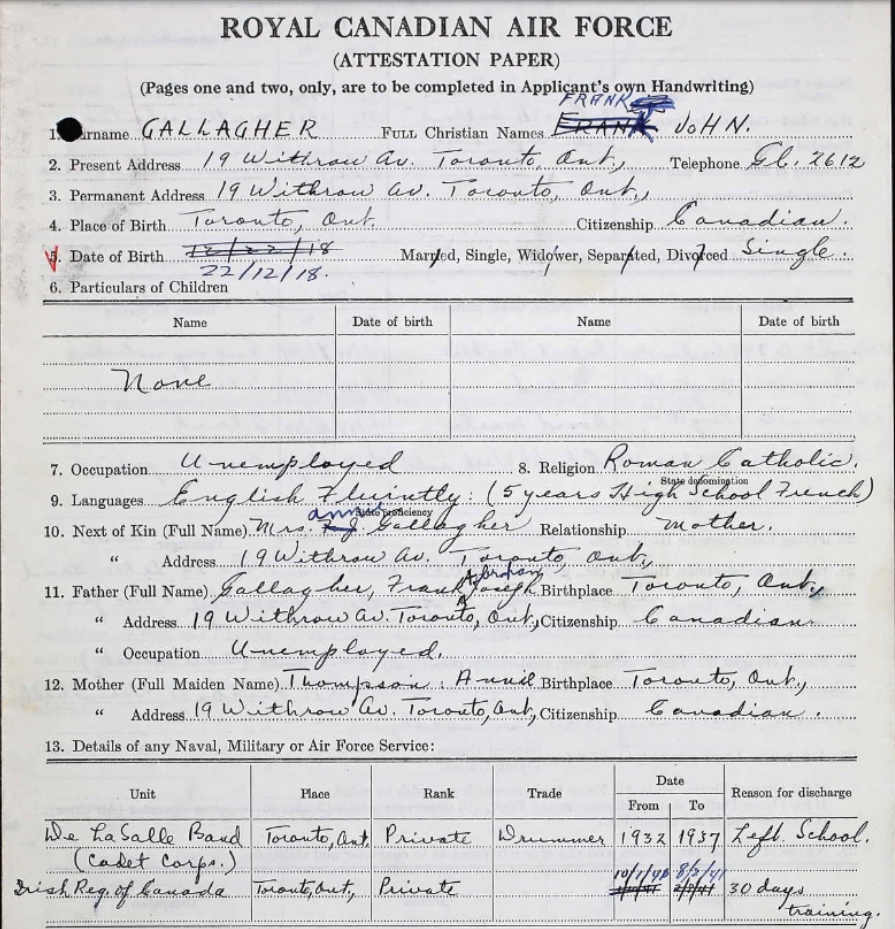 ROYAL CANADIAN AIR FORCE
(ATTESTATION PAPER)
(Pages one and two, only, are to be completed in Applicant's own Handwriting)
FRANK
1. urname GALLAGHER FULL Christian Names FRANK JOHN.
2. Present Address 19 Withrow Av. Toronto, Ont., Telephone Gl. 2612
3. Permanent Address 19 Withrow Av. Toronto, Ont.,
4. Place of Birth Toronto, Ont. Citizenship Canadian.
5. Date of Birth 12/22/18 Married, Single, Widower, Separated, Divorced Single.
22/12/18.
6. Particulars of Children
Name Date of birth Name Date of birth
None
7. Occupation Unemployed 8. Religion Roman Catholic.
State denomination
9. Languages English Fluintly: (5 years High School French)
State Proficiency
annie
10. Next of Kin (Full Name) Mrs. F. J. Gallagher Relationship mother.
" Address 19 Withrow Av. Toronto, Ont.,
11. Father (Full Name) Gallagher, Frank Joseph Birthplace Toronto, Ont.,
" Address 19 Withrow Av. Toronto, Ont., Citizenship Canadian
" Occupation Unemployed.
12. Mother (Full Maiden Name) Thompson: Annie Birthplace Toronto, Ont.,
" Address 19 Withrow Av. Toronto, Ont., Citizenship Canadian.
13. Details of any Naval, Military or Air Force Service:
Unit Place Rank Trade Date Reason for discharge
From To
De LaSalle Band Toronto, Ont. Private Drummer 1932 1937 Left School.
(Cadet Corps.)
10/1/41 8/2/41
Irish Reg. of Canada Toronto, Ont., Private 30 days
training.